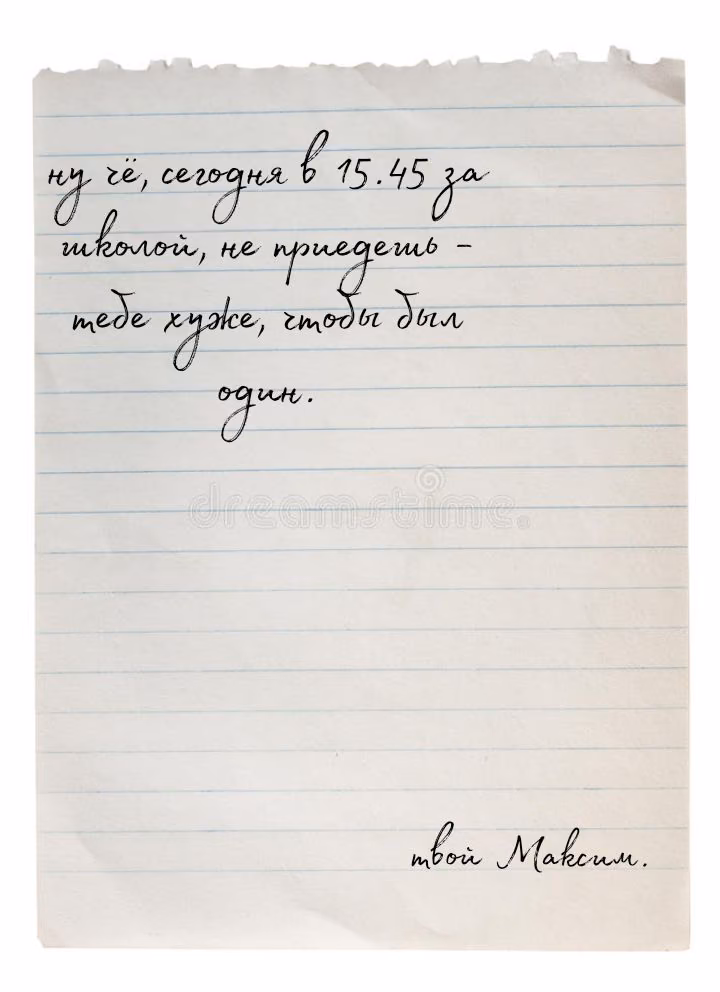 ну чё, сегодня в 15.45 за
школой, не приедешь -
тебе хуже, чтобы был
один.
dreamstime.
твой Максим.